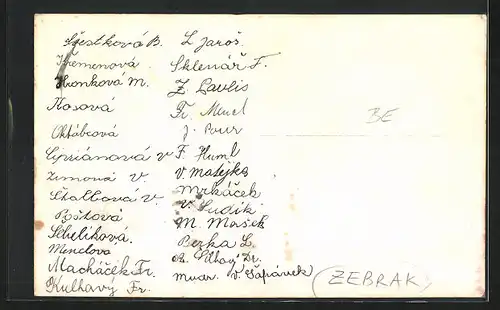 Šestková B.
Křemenová
Hronková M.
Kosová
Októbcová
Cipriánová V
Zimová V.
Škallová V.
Pöštová
Šbulíková.
Menclova
Macháček Fr.
Kulhavý Fr.
L Jaroš.
Sklenář F.
Z Pavlis
Fr. Mencl
J. Pour
F. Huml
V. Matejka
Mrkáček
V. Sudik
M. Mašek
Berka L.
Dr.
Mudr. V Šafránek
BE
(ZEBRAK)